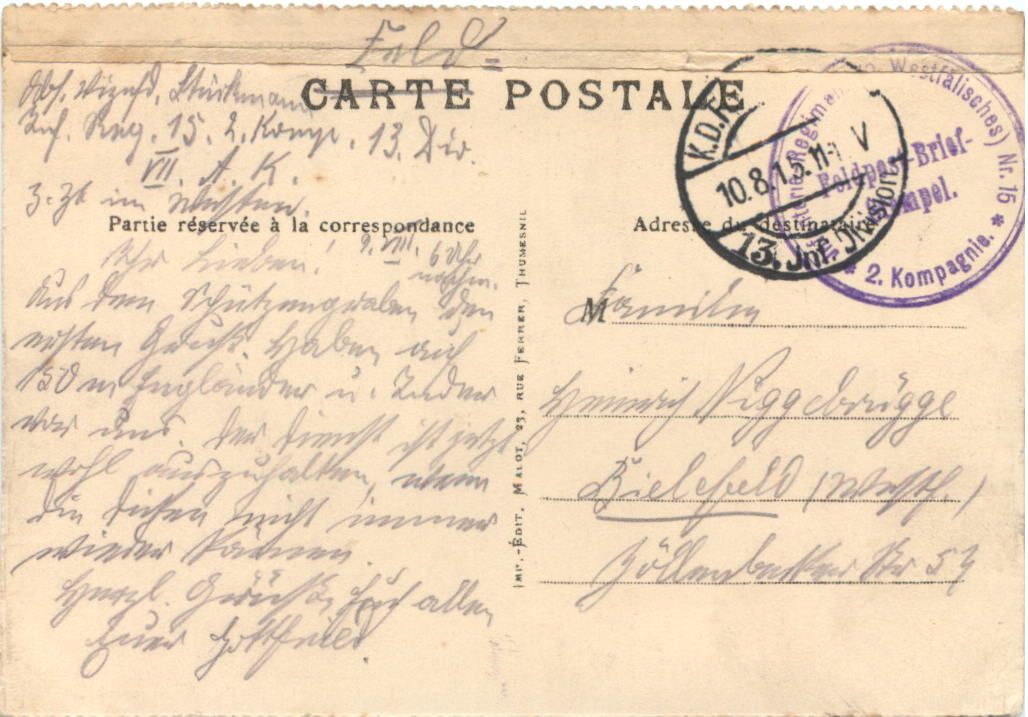 Feld=
CARTE POSTALE
Abs. Vizefd. Stückmann
Inf. Reg. 15. 2. Komp. 13. Div.
VII. A. K.
z. Zt im Westen.
Partie réservée à la correspondance
Adresse du destinataire
K.D.
10.8.15.11-1 V
13. Inf. Division
Westfälisches) Nr. 15
Feldpost-Brief-
stempel.
* 2. Kompagnie. *
9. VIII. 6 Uhr
nachm.
Ihr Lieben!
Aus dem Schützengraben den
ersten Gruß. Haben auf
150 m Engländer u. Inder
vor uns. Der Dienst ist jetzt
wohl auszuhalten, wenn
die dicken nicht immer
wieder kämen.
Herzl. Grüße Euch allen
Euer Gottfried
IMP.-ÉDIT. MALOT, 23, RUE FERRER, THUMESNIL
M Familie
Heinrich Niggebrügge
Bielefeld (Westf.)
Str 57